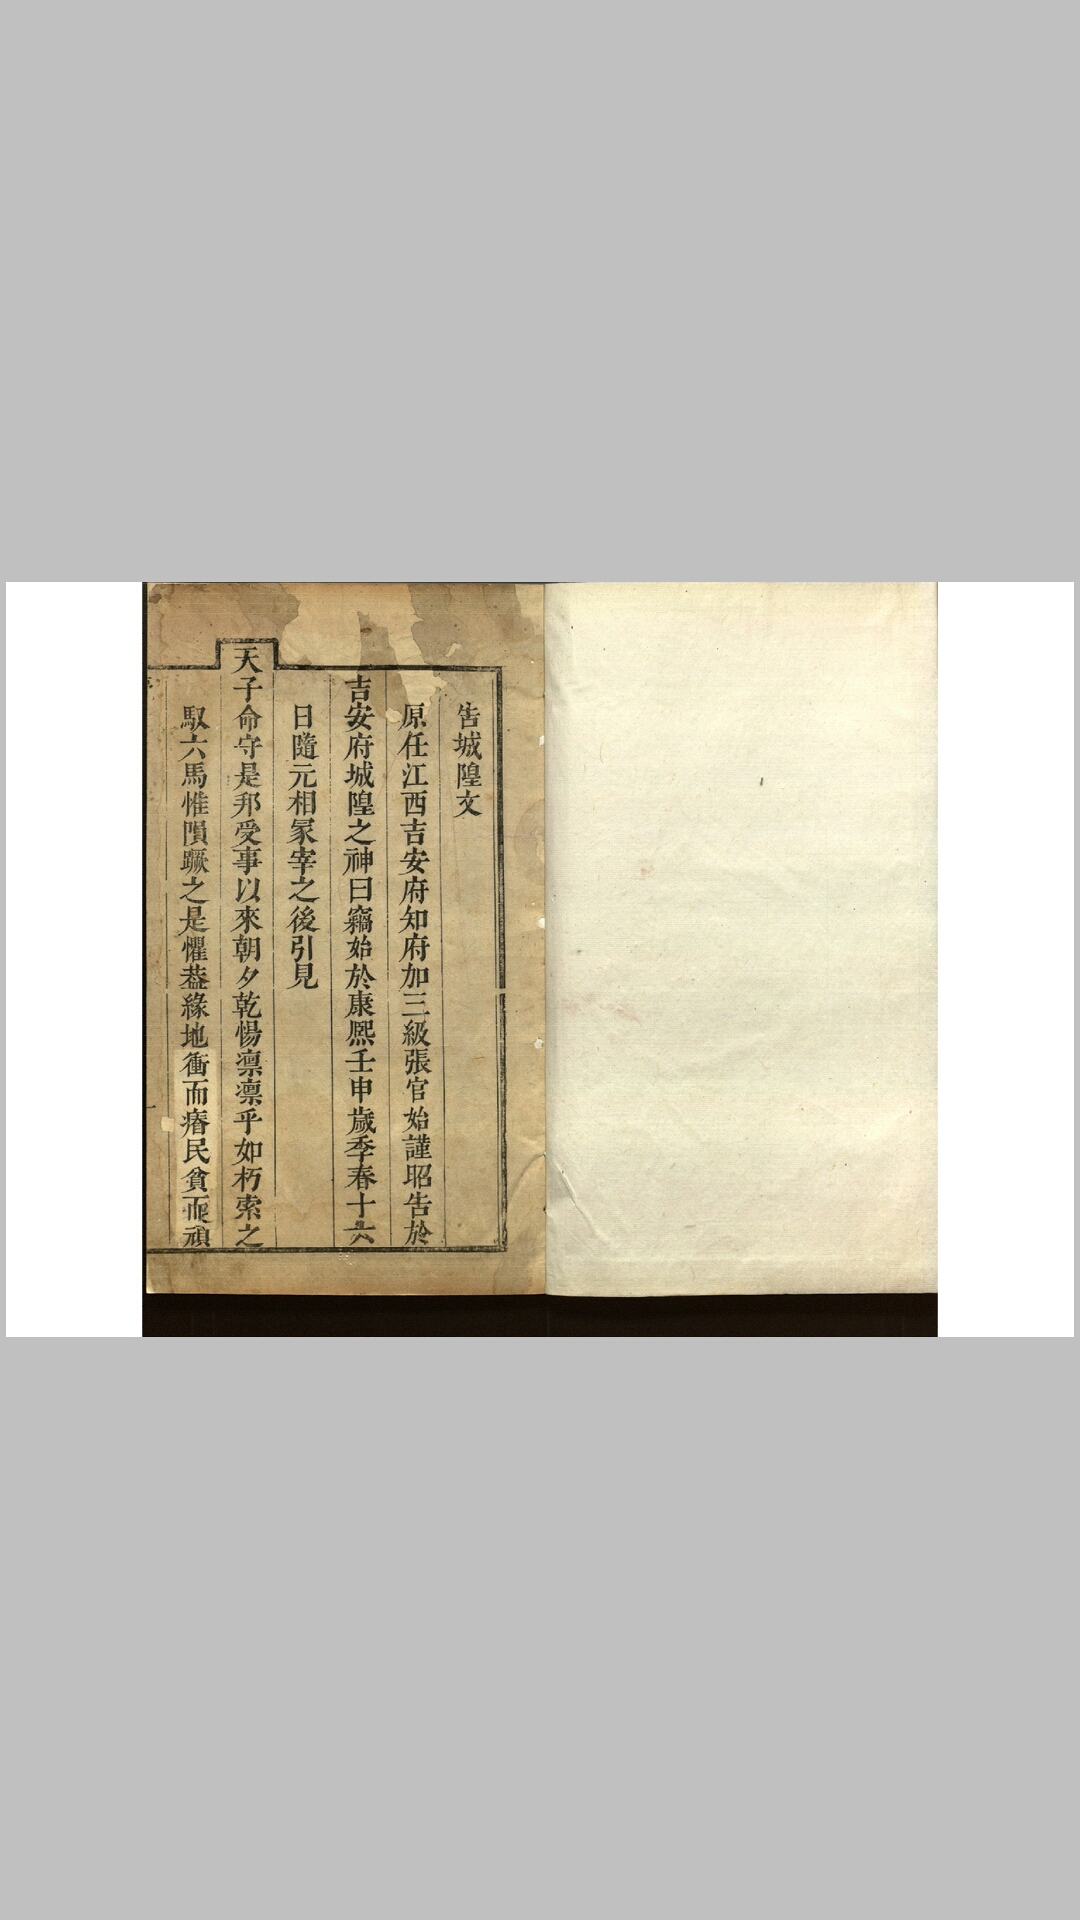 告城隍文
原任江西吉安府知府加三級張官始謹昭告於
吉安府城隍之神曰竊始於康熈壬申歲季春十六
日隨元相冢宰之後引見
天子命守是邦受事以來朝夕乾惕凛凛乎如朽索之
馭六馬惟隕蹶之是懼葢緣地衝而瘠民貧而頑